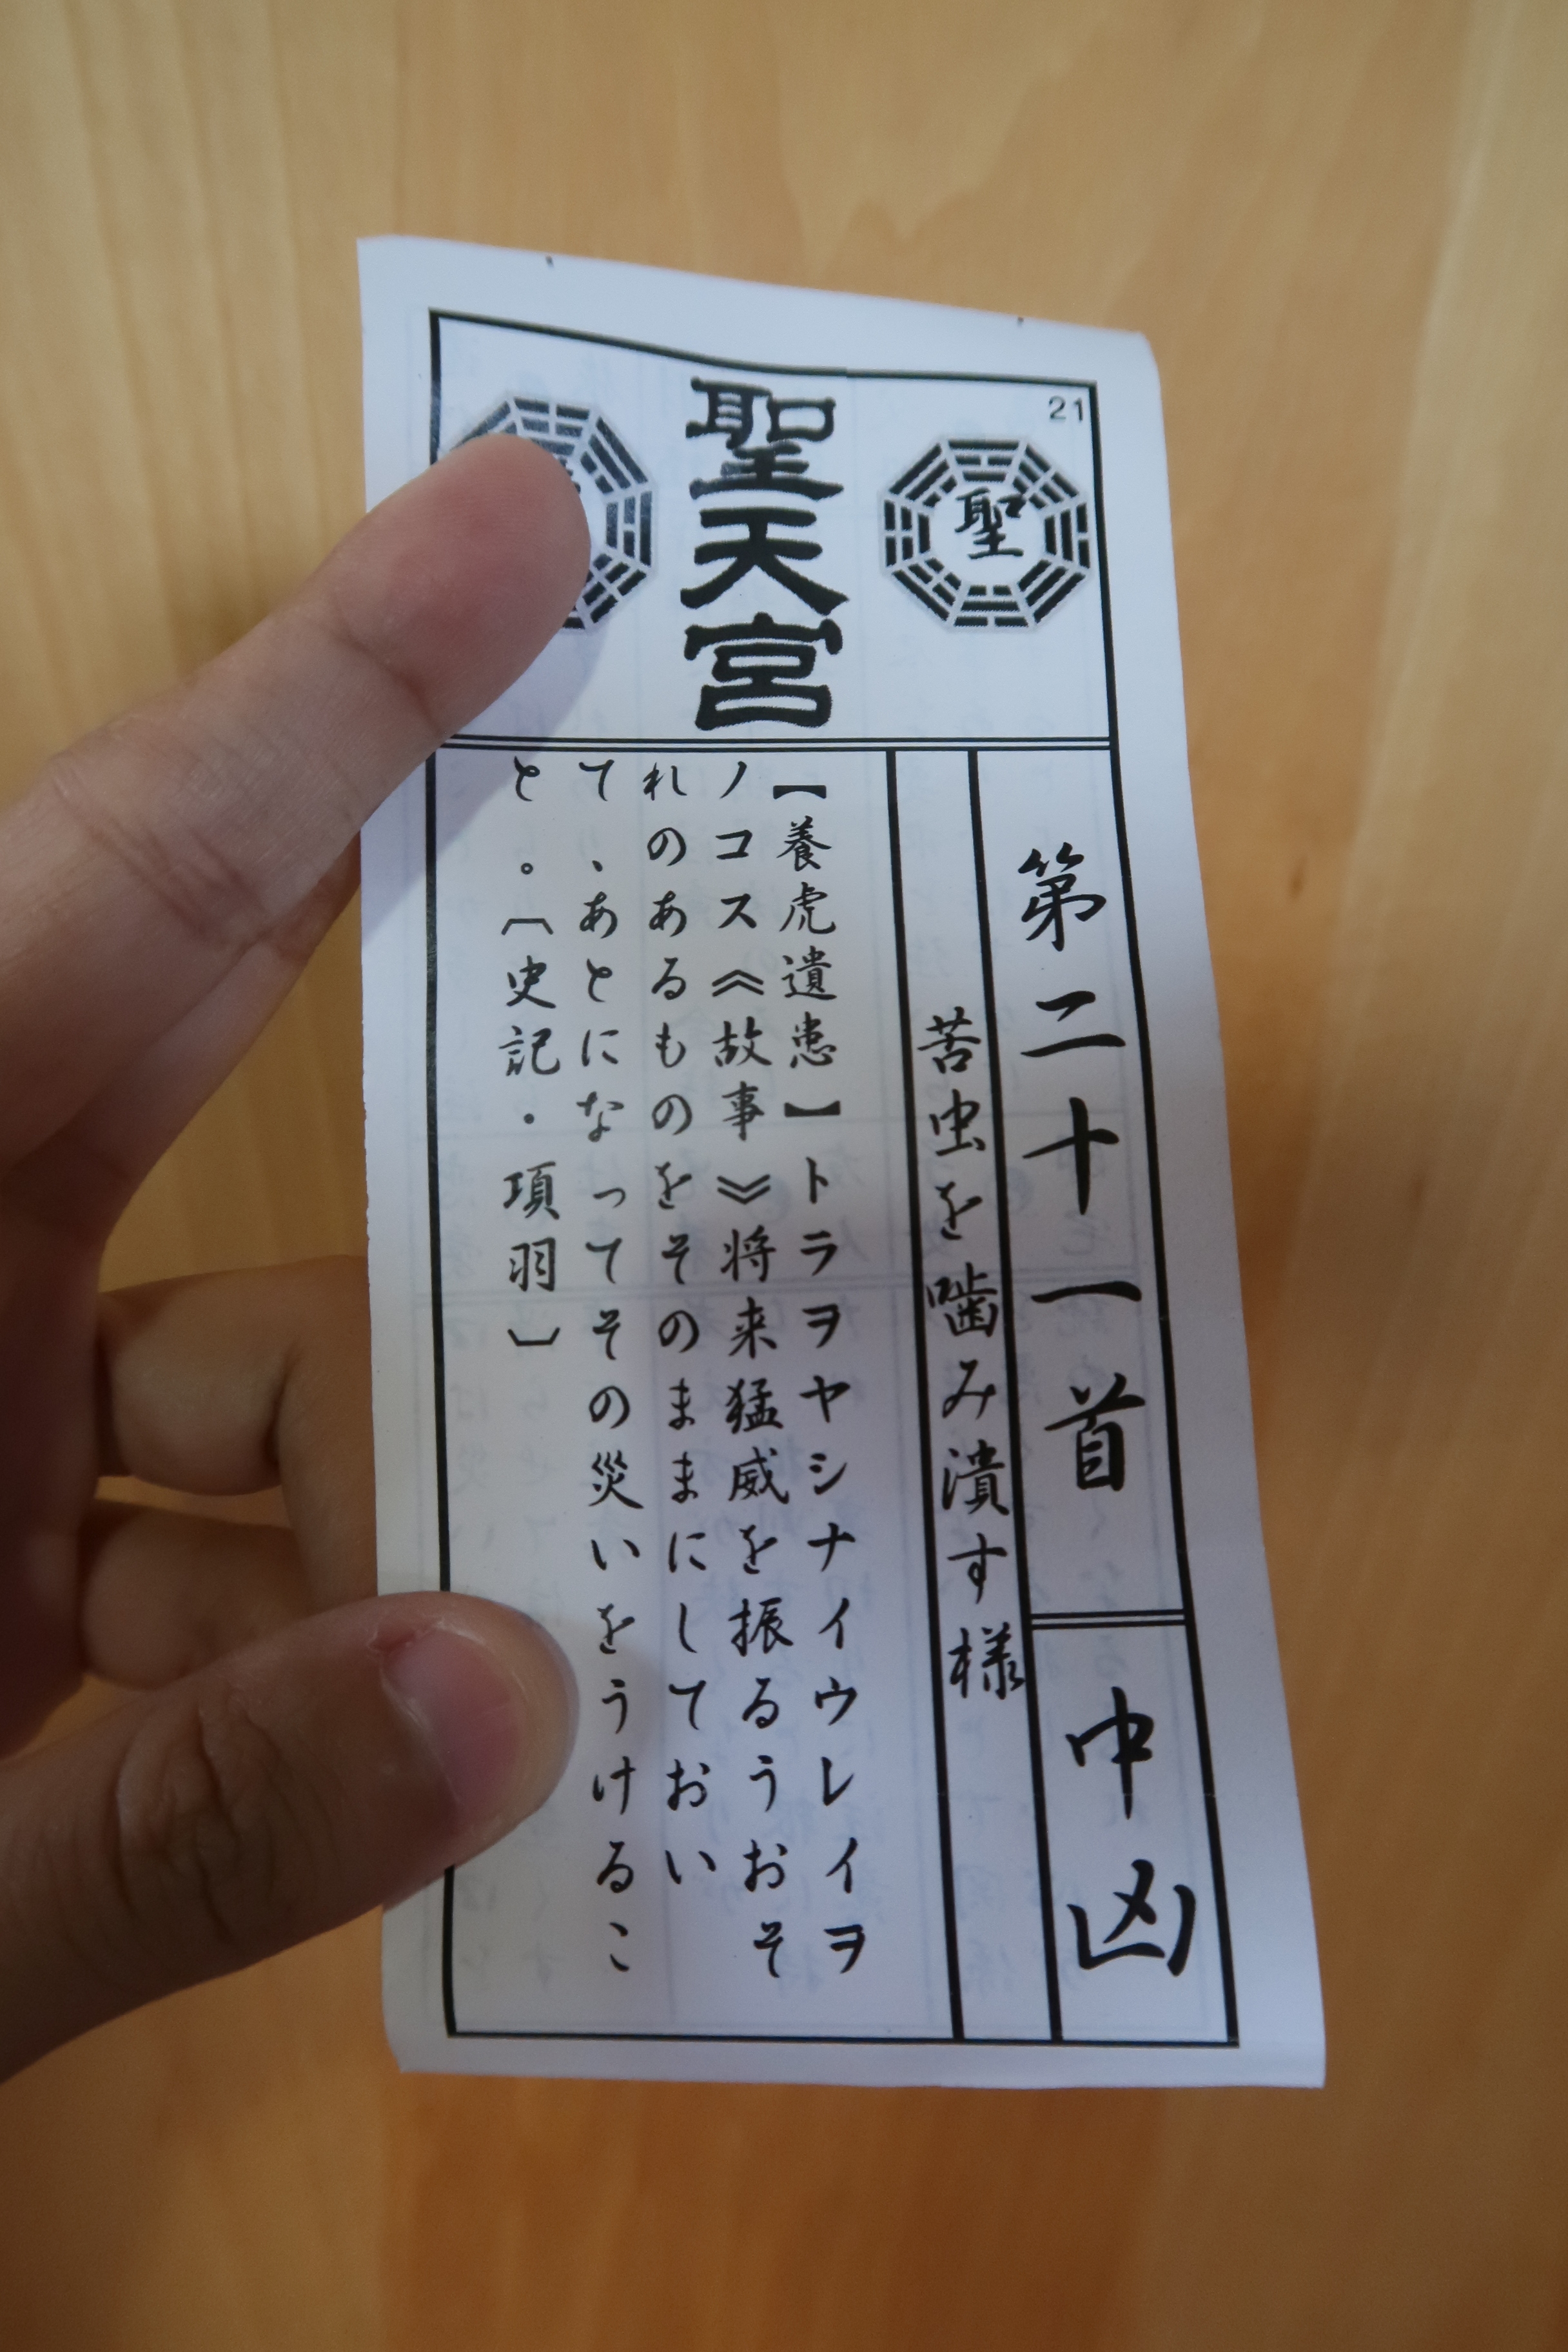 21
聖
聖天宮
第二十一首
中凶
苦虫を噛み潰す様
【養虎遺患】トラヲヤシナイウレイヲ
ノコス《故事》将来猛威を振るうおそ
れのあるものをそのままにしておい
て、あとになってその災いをうけるこ
と。〔史記・項羽〕